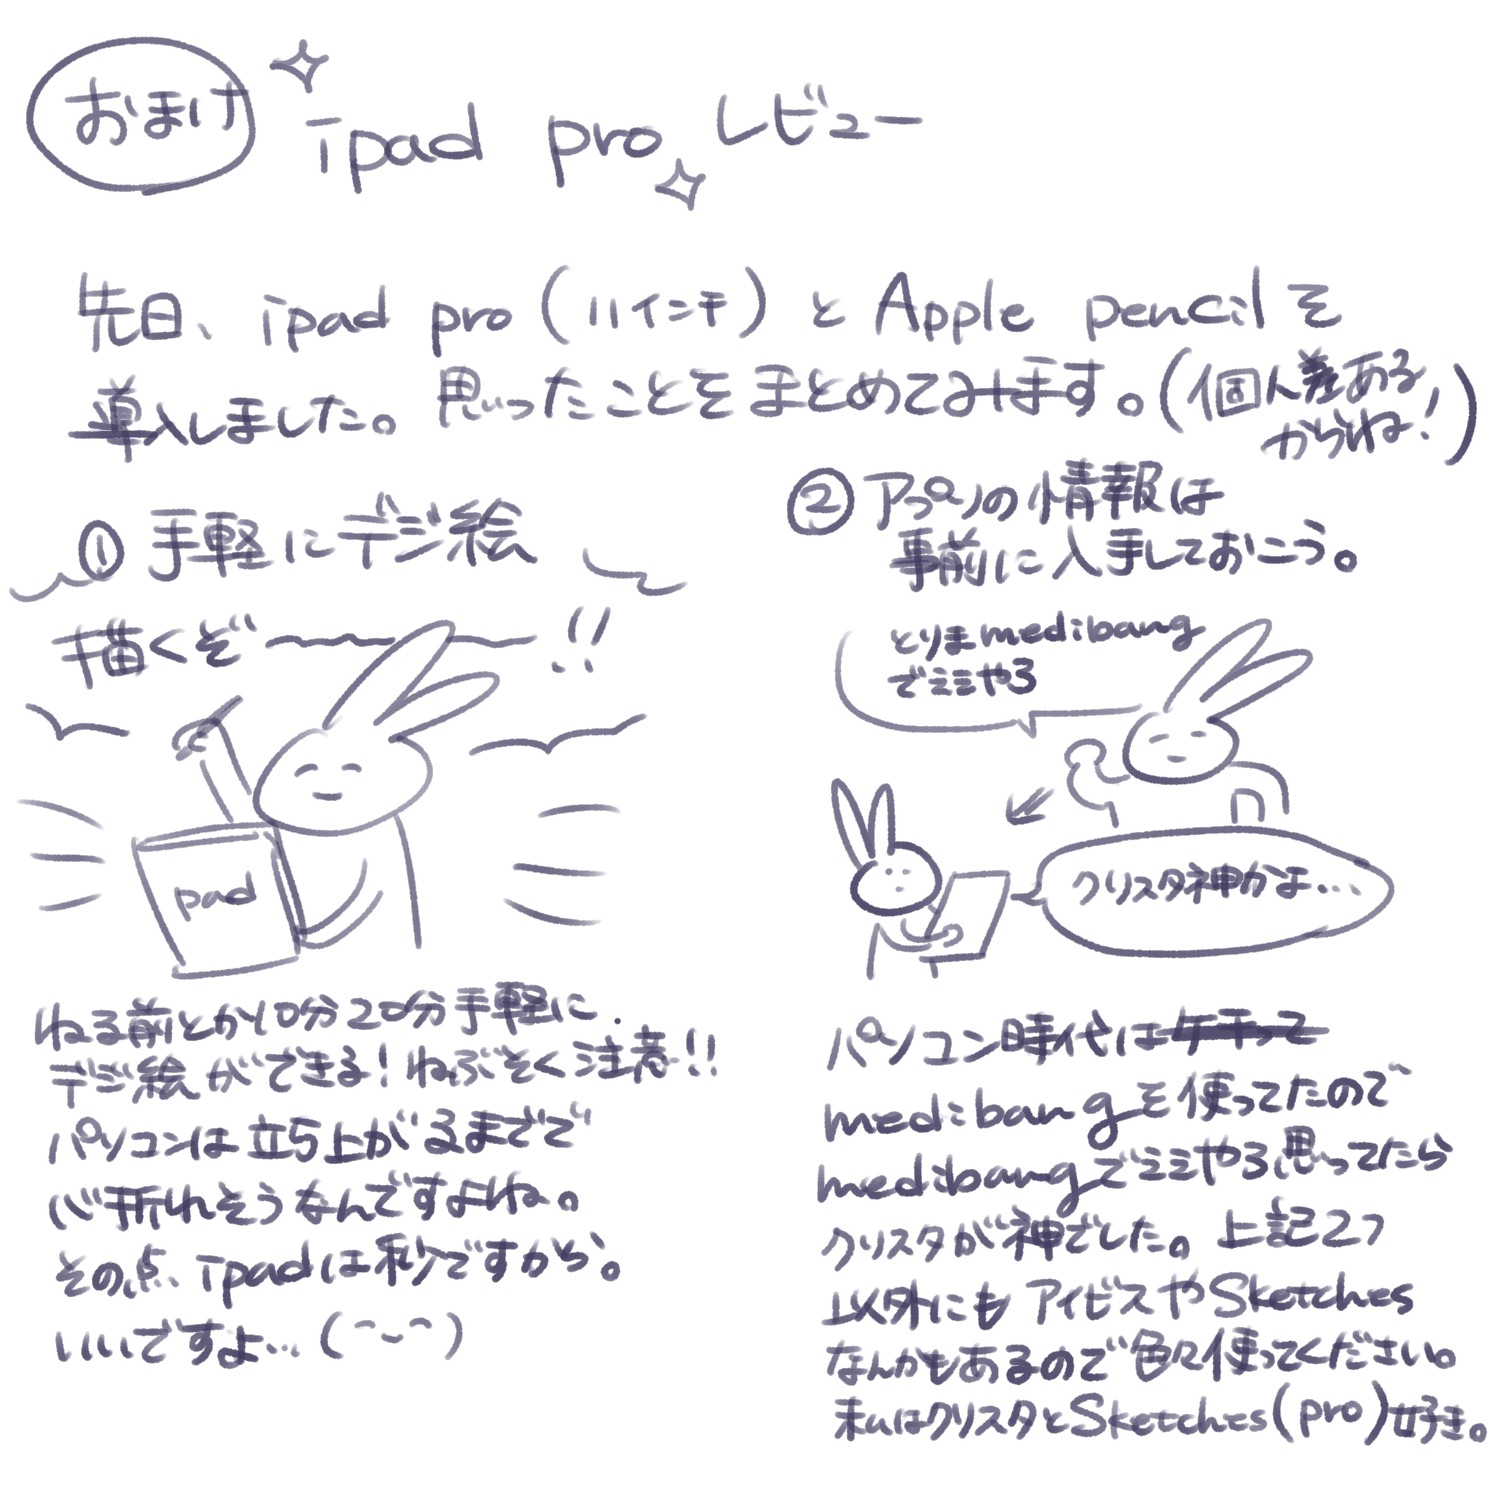 おまけ
ipad pro レビュー
先日、ipad pro(11インチ)とApple pencilを
導入しました。思ったことをまとめてみます。(個人差ある
からね!)
① 手軽にデジ絵
描くぞ〜〜〜!!
pad
ねる前とか10分20分手軽に
デジ絵ができる!ねぶそく注意!!
パソコンは立ち上がるまでで
心折れそうなんですよね。
その点、ipadは秒ですから。
いいですよ…(ᵔ ᵕ ᵔ)
② アプリの情報は
事前に入手しておこう。
とりまmedibang
でええやろ
クリスタ神かよ…
パソコン時代は
medibangを使ってたので
medibangでええやろ思ってたら
クリスタが神でした。上記2つ
以外にもアイビスやSketches
なんかもあるので色々使ってください。
私はクリスタとSketches(pro)好き。